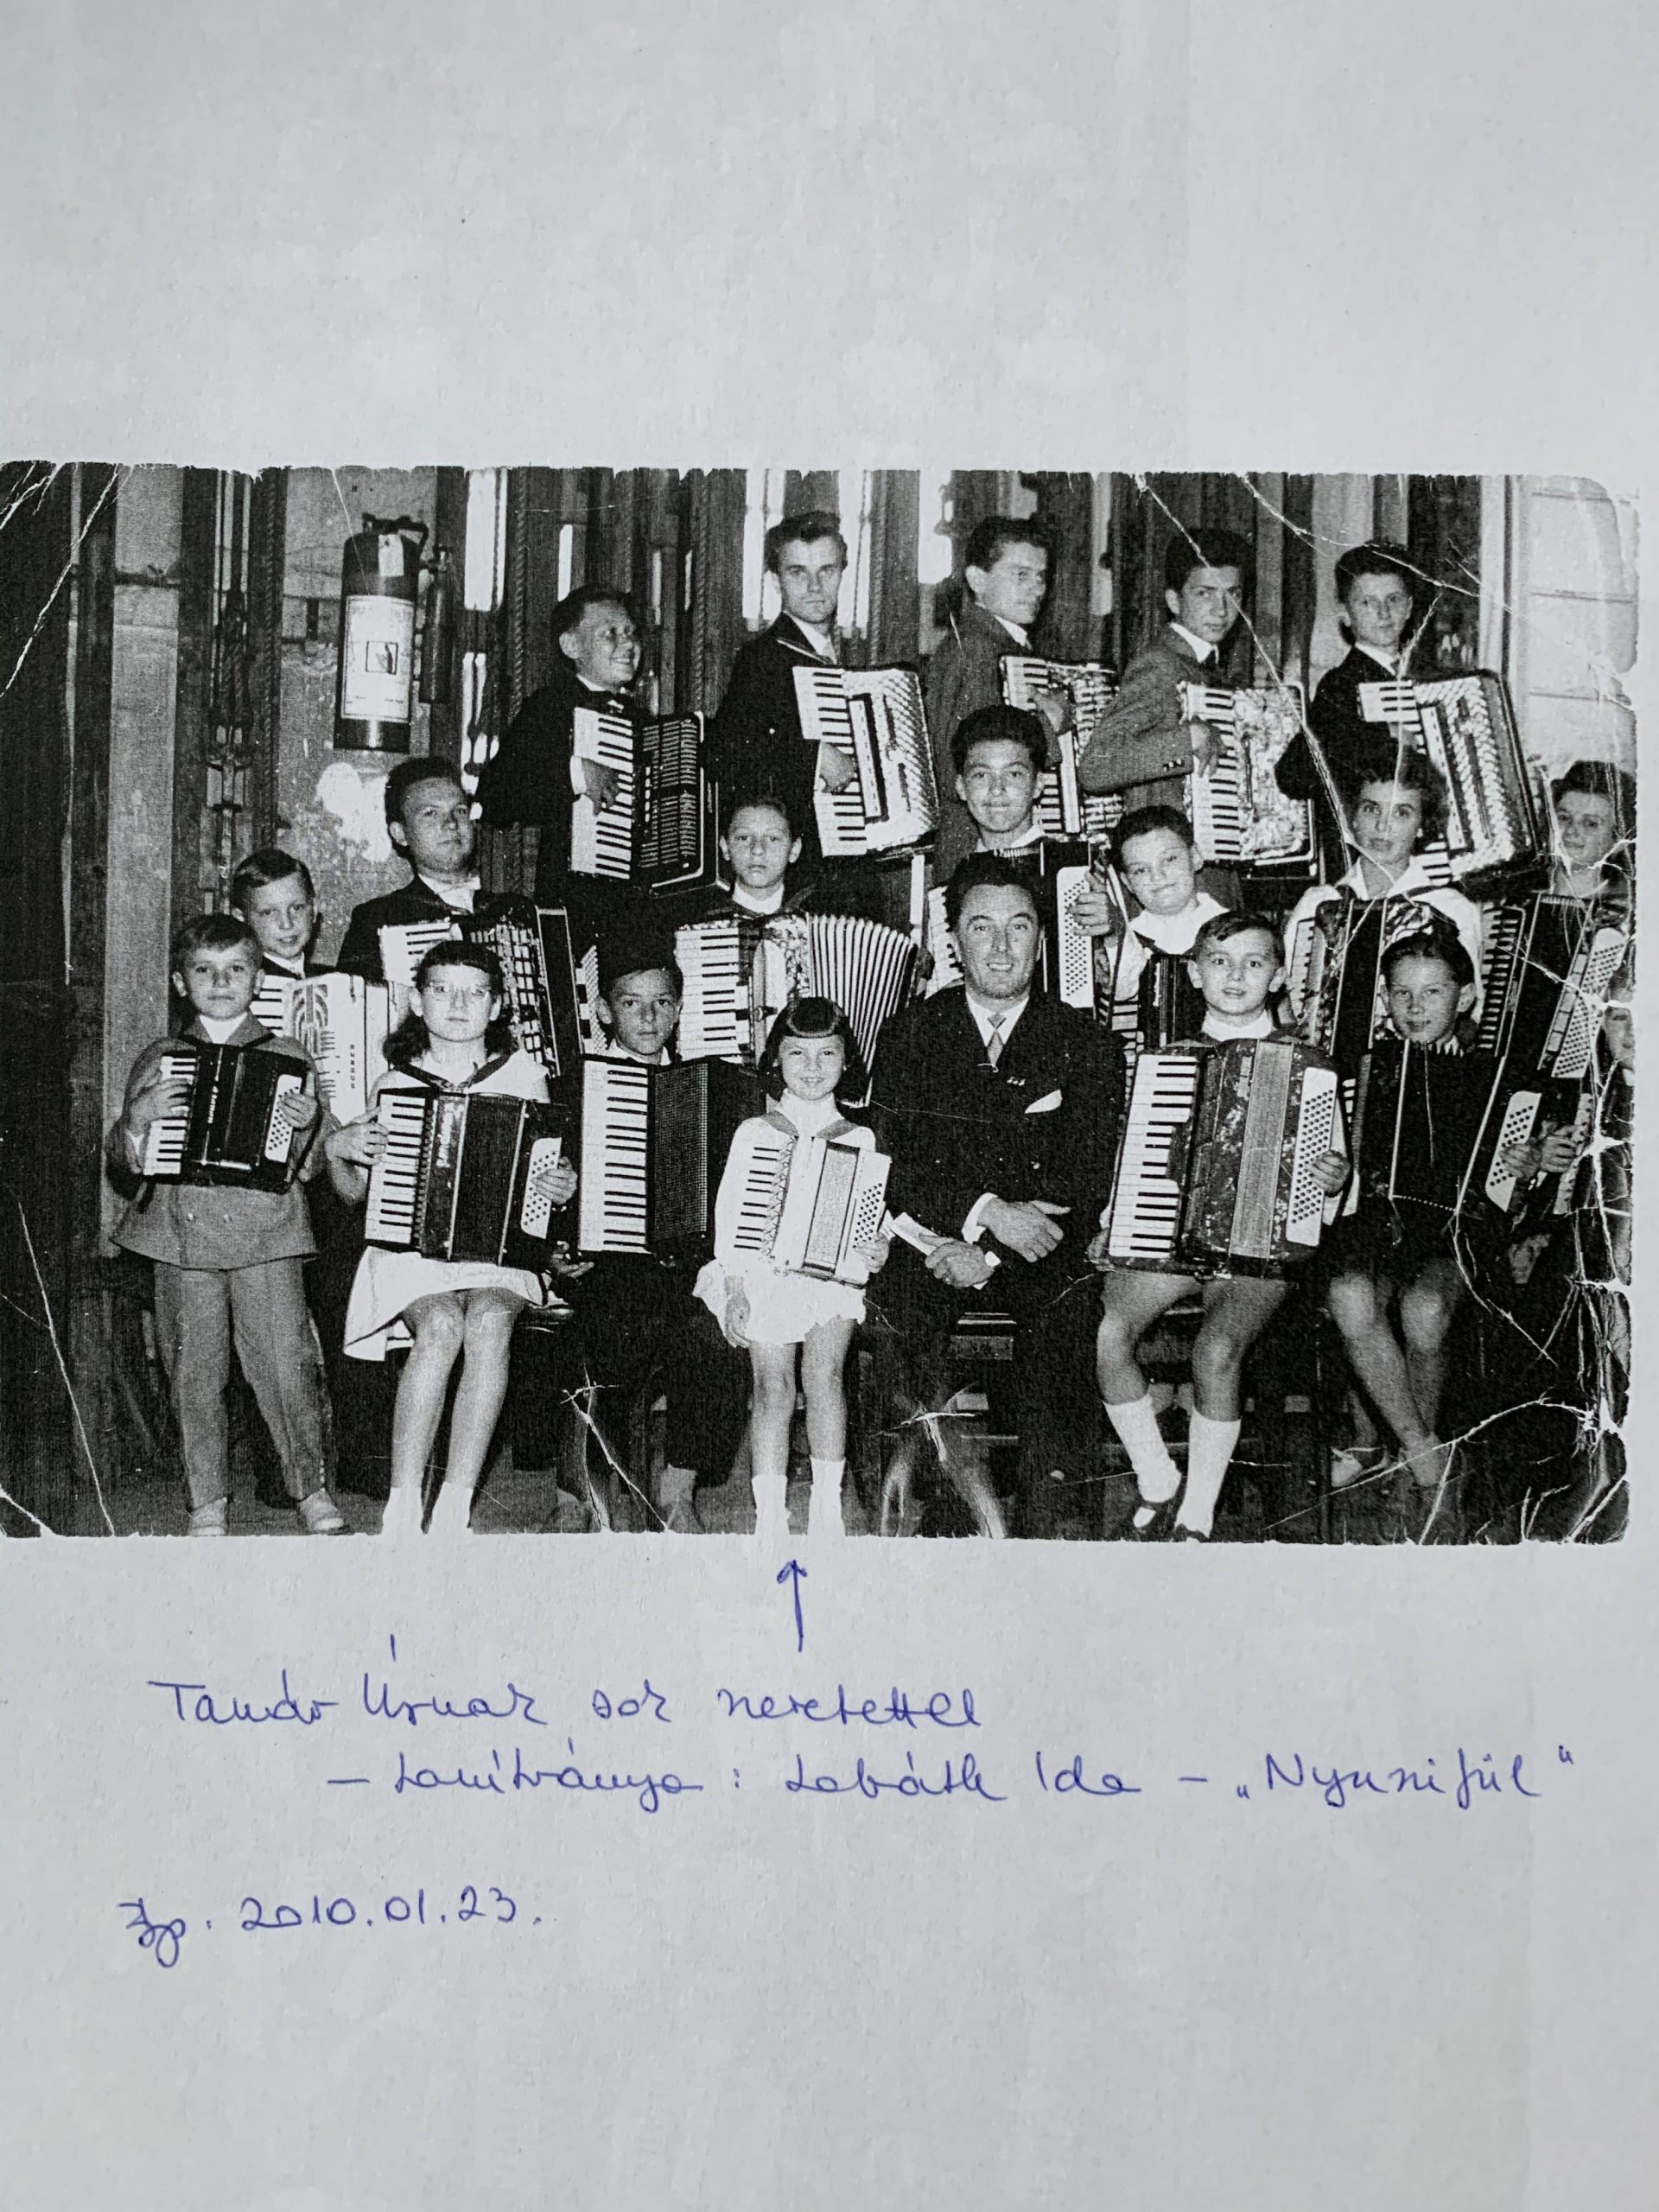 HOHNER
Tanár Úrnak sok szeretettel
– tanítványa: Lobáth Ida – „Nyuszifül"
Zp. 2010.01.23.